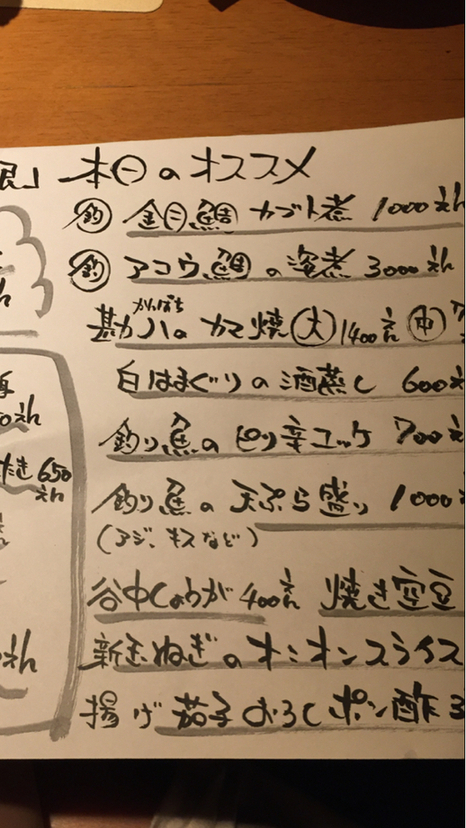 本日のオススメ
釣 金目鯛 カブト煮 1000えん
釣 アコウ鯛の煮 3000えん
かんぱち
勘八のカマ焼 大 1400えん 中
白はまぐりの酒蒸し 600え
釣り魚のピリ辛ユッケ 700え
釣り魚の天ぷら盛り 1000
(アジ、キスなど)
谷中しょうが 400えん 焼き空豆
新玉ねぎのオニオンスライス
揚げ茄子おろしポン酢 3
たき 650
えん
えん